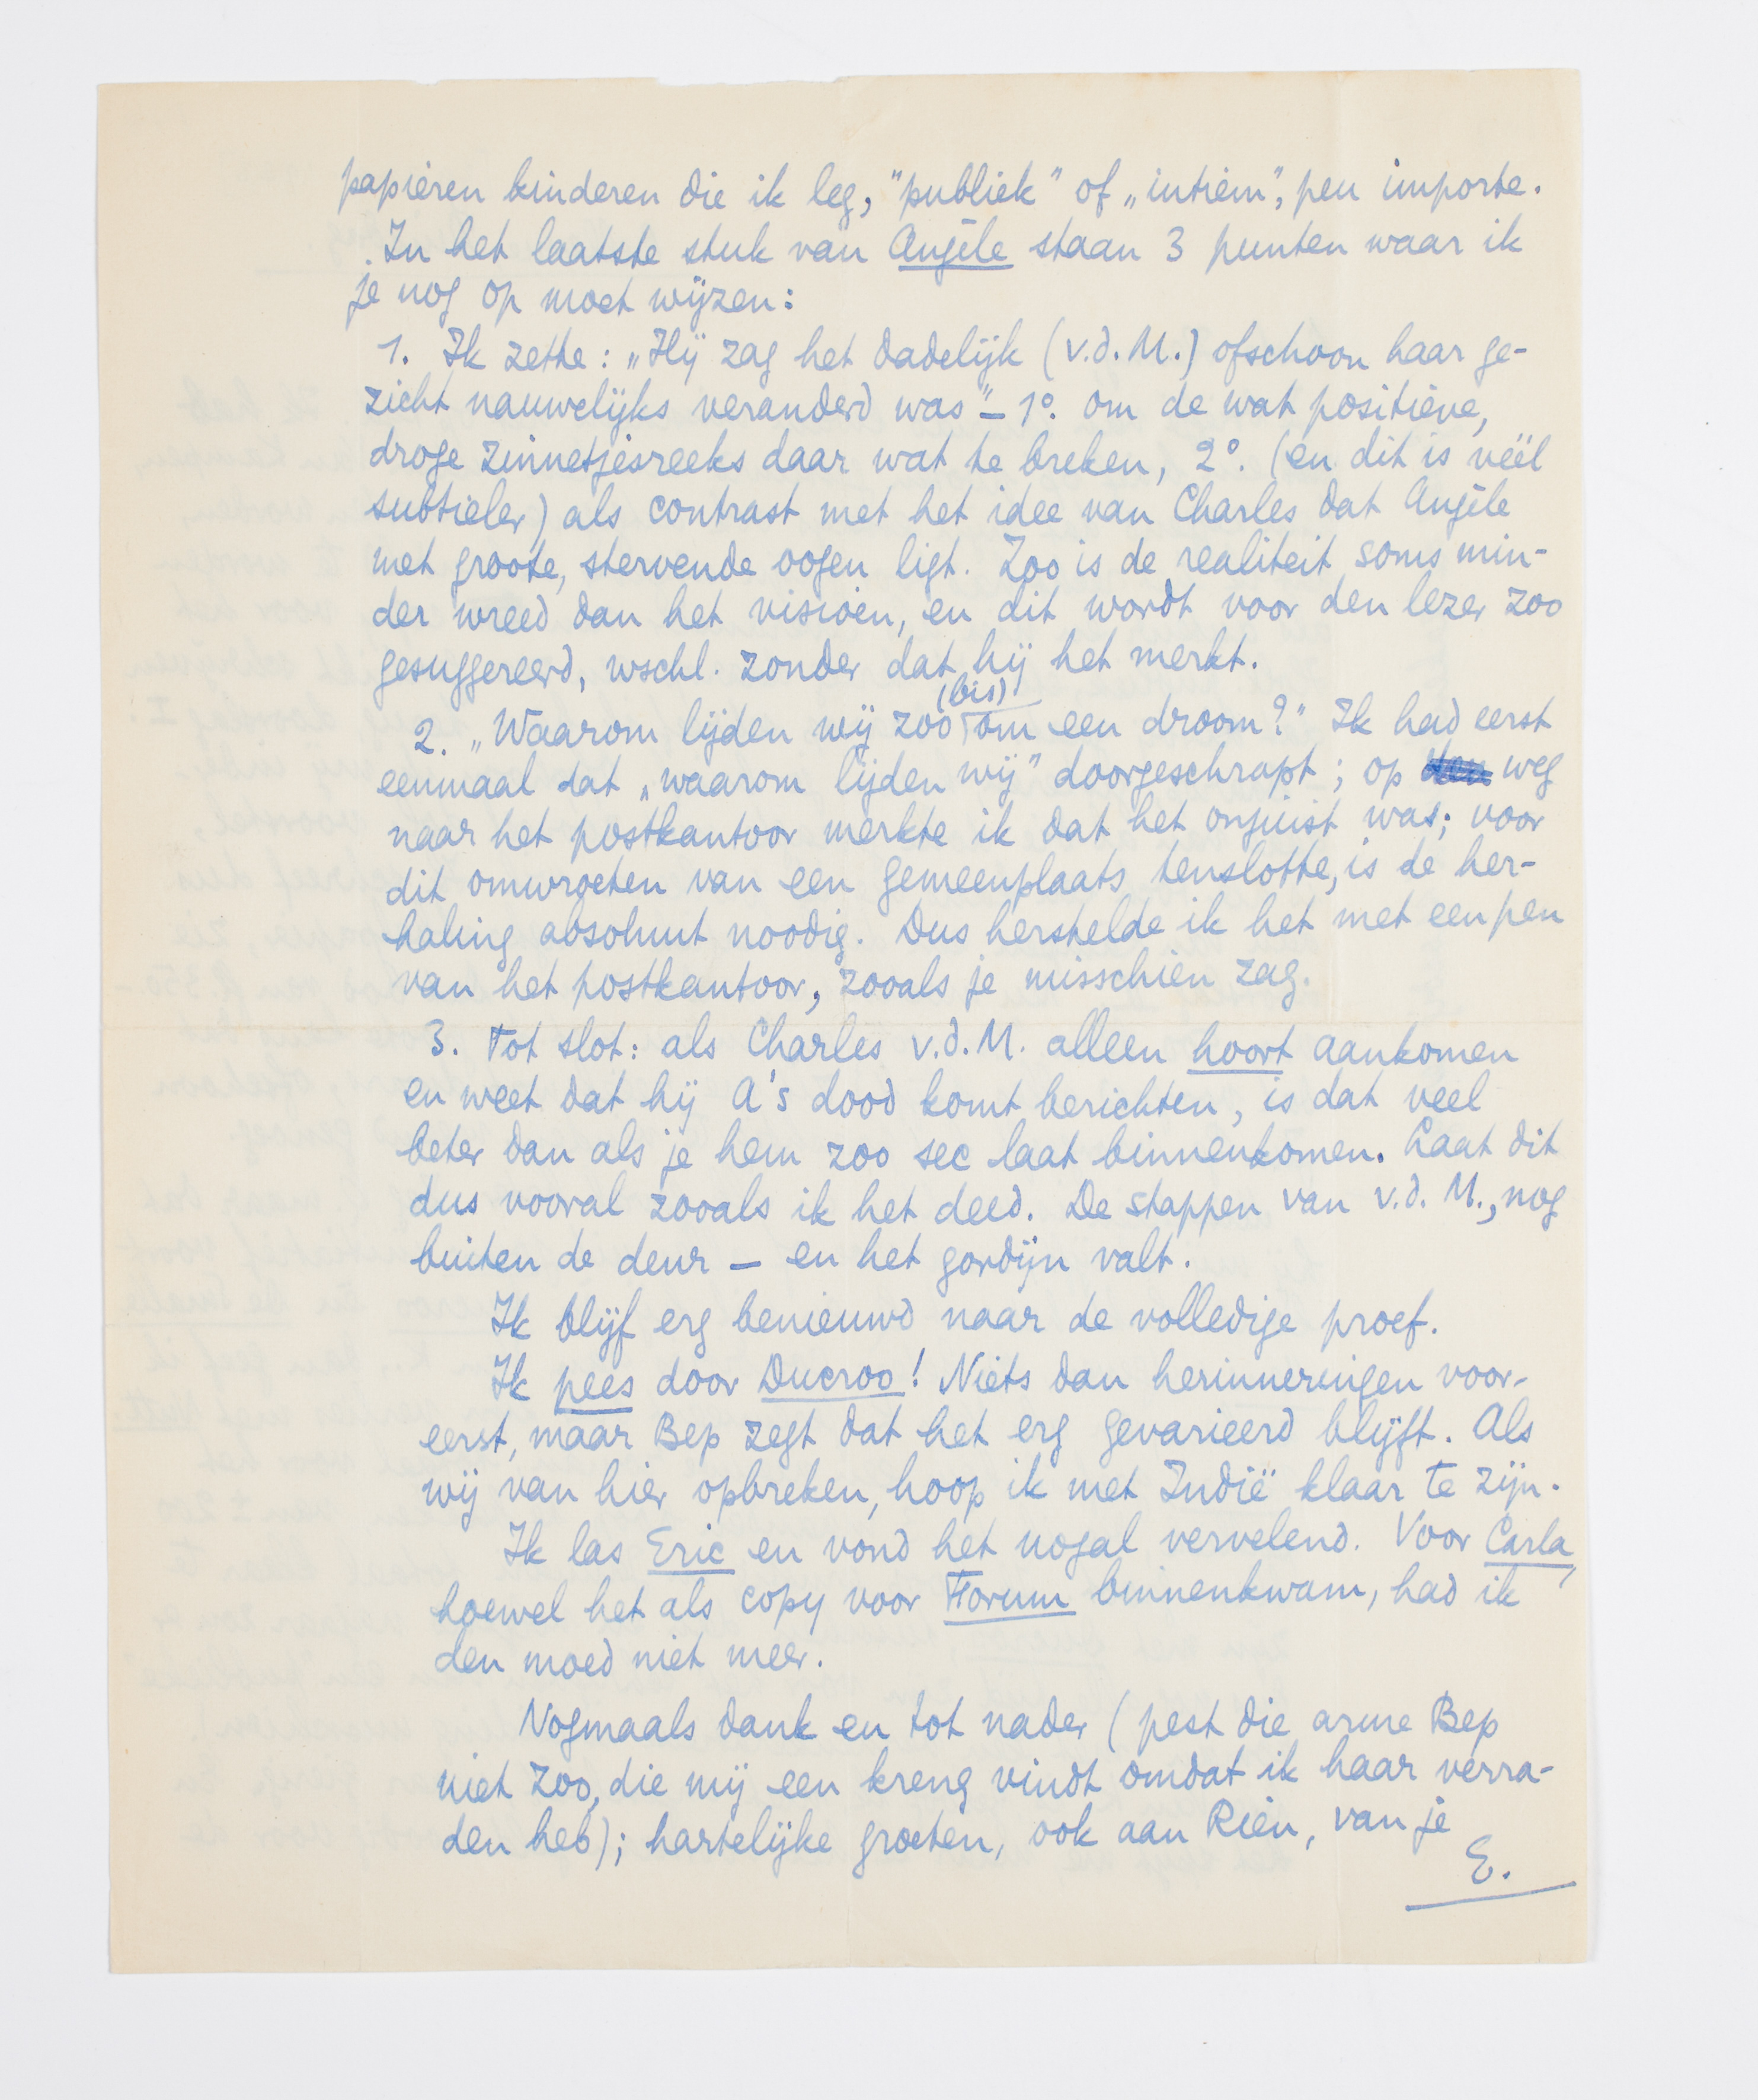 papieren kinderen die ik leg, "publiek" of „intiem", peu importe.
In het laatste stuk van Angèle staan 3 punten waar ik
je nog op moet wijzen:
1. Ik zette: „Hij zag het dadelijk (v.d.M.) ofschoon haar ge-
zicht nauwelijks veranderd was" – 1°. om de wat positieve,
droge zinnetjesreeks daar wat te breken, 2°. (en dit is véél
subtieler) als contrast met het idee van Charles dat Angèle
met groote, stervende oogen ligt. Zoo is de realiteit soms min-
der wreed dan het visioen, en dit wordt voor den lezer zoo
gesuggereerd, wschl. zonder dat hij het merkt.
(bis)
2. „Waarom lijden wij zoo om een droom?" Ik had eerst
eenmaal dat „waarom lijden wij" doorgeschrapt; op den weg
naar het postkantoor merkte ik dat het onjuist was; voor
dit omwroeten van een gemeenplaats tenslotte, is de her-
haling absoluut noodig. Dus herstelde ik het met een pen
van het postkantoor, zooals je misschien zag.
3. Tot slot: als Charles v.d.M. alleen hoort aankomen
en weet dat hij A's dood komt berichten, is dat veel
beter dan als je hem zoo sec laat binnenkomen. Laat dit
dus vooral zooals ik het deed. De stappen van v.d.M., nog
buiten de deur – en het gordijn valt.
Ik blijf erg benieuwd naar de volledige proef.
Ik pees door Ducroo! Niets dan herinneringen voor-
eerst, maar Bep zegt dat het erg gevarieerd blijft. Als
wij van hier opbreken, hoop ik met Indië klaar te zijn.
Ik las Eric en vond het nogal vervelend. Voor Carla,
hoewel het als copy voor Forum binnenkwam, had ik
den moed niet meer.
Nogmaals dank en tot nader (pest die arme Bep
niet zoo, die mij een kreng vindt omdat ik haar verra-
den heb); hartelijke groeten, ook aan Rien, van je
E.